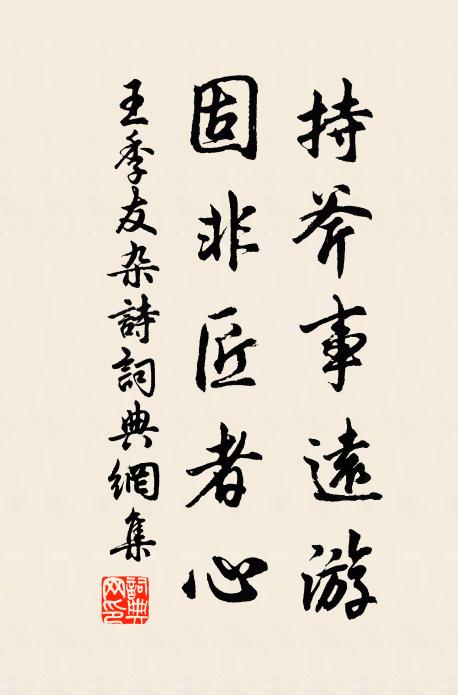 持斧事遠游
固非匠者心
王季友杂詩詞典網集
詞典网印